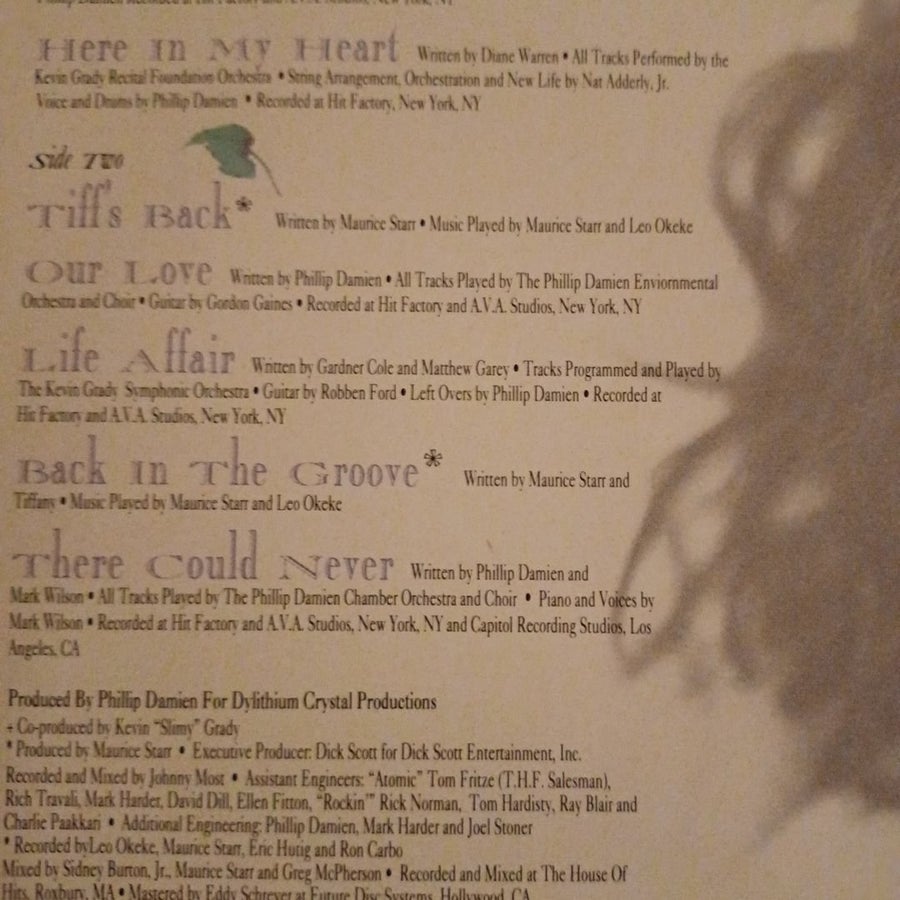 Phillip Damien Recorded at Hit Factory and A.V.A. Studios, New York, NY
Here In My Heart Written by Diane Warren • All Tracks Performed by the
Kevin Grady Recital Foundation Orchestra • String Arrangement, Orchestration and New Life by Nat Adderly, Jr.
Voice and Drums by Phillip Damien • Recorded at Hit Factory, New York, NY
Side Two
Tiff's Back* Written by Maurice Starr • Music Played by Maurice Starr and Leo Okeke
Our Love Written by Phillip Damien • All Tracks Played by The Phillip Damien Enviornmental
Orchestra and Choir • Guitar by Gordon Gaines • Recorded at Hit Factory and A.V.A. Studios, New York, NY
Life Affair Written by Gardner Cole and Matthew Garey • Tracks Programmed and Played by
The Kevin Grady Symphonic Orchestra • Guitar by Robben Ford • Left Overs by Phillip Damien • Recorded at
Hit Factory and A.V.A. Studios, New York, NY
Back In The Groove* Written by Maurice Starr and
Tiffany • Music Played by Maurice Starr and Leo Okeke
There Could Never Written by Phillip Damien and
Mark Wilson • All Tracks Played by The Phillip Damien Chamber Orchestra and Choir • Piano and Voices by
Mark Wilson • Recorded at Hit Factory and A.V.A. Studios, New York, NY and Capitol Recording Studios, Los
Angeles, CA
Produced By Phillip Damien For Dylithium Crystal Productions
+ Co-produced by Kevin "Slimy" Grady
* Produced by Maurice Starr • Executive Producer: Dick Scott for Dick Scott Entertainment, Inc.
Recorded and Mixed by Johnny Most • Assistant Engineers: "Atomic" Tom Fritze (T.H.F. Salesman),
Rich Travali, Mark Harder, David Dill, Ellen Fitton, "Rockin'" Rick Norman, Tom Hardisty, Ray Blair and
Charlie Paakkari • Additional Engineering: Phillip Damien, Mark Harder and Joel Stoner
* Recorded byLeo Okeke, Maurice Starr, Eric Hutig and Ron Carbo
Mixed by Sidney Burton, Jr., Maurice Starr and Greg McPherson • Recorded and Mixed at The House Of
Hits, Roxbury, MA • Mastered by Eddy Schreyer at Future Disc Systems, Hollywood, CA